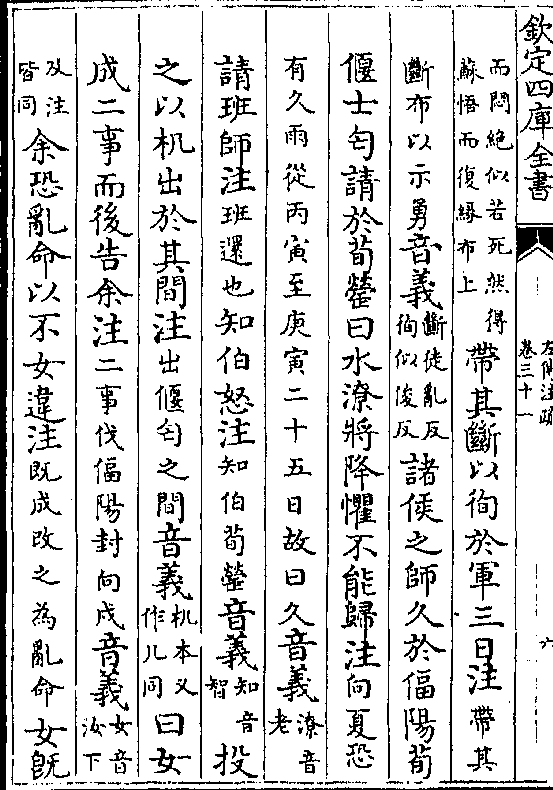 欽定四庫全書
左傳注疏
卷三十一
六
而悶絶似若死然得
蘇悟而復緣布上
帶其斷以徇於軍三日注帶其
斷布以示勇音義斷徒亂反
徇似俊反
諸侯之師久於偪陽荀
偃士匄請於荀罃曰水潦將降懼不能歸注向夏恐
有久雨從丙寅至庚寅二十五日故曰久音義潦音
老
請班師注班還也知伯怒注知伯荀罃音義知音
智
投
之以机出於其間注出偃匄之間音義机本又
作几同
曰女
成二事而後告余注二事伐偪陽封向戌音義女音
汝下
及注
皆同
余恐亂命以不女違注既成改之為亂命女既